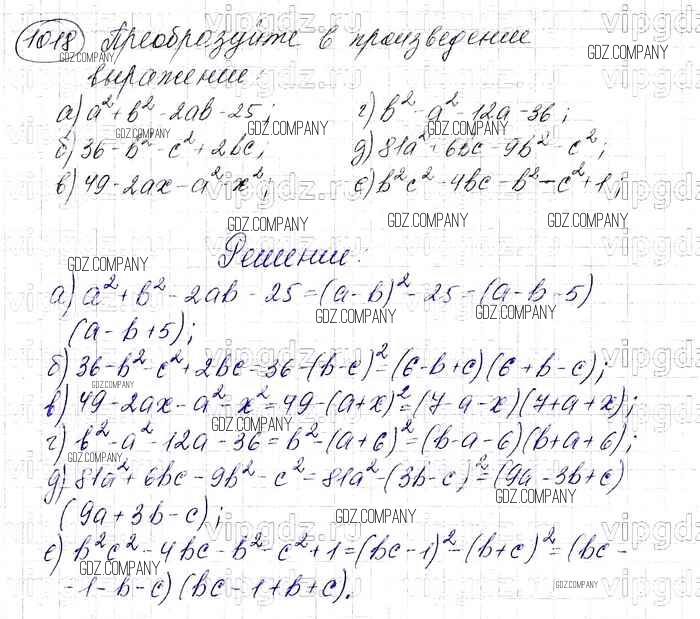 1018 Преобразуйте в произведение
выражение:
а) a² + b² - 2ab - 25; г) b² - a² - 12a - 36;
б) 36 - b² - c² + 2bc; д) 81a² + 6bc - 9b² - c²;
в) 49 - 2ax - a² - x²; е) b²c² - 4bc - b² - c² + 1;
Решение:
а) a² + b² - 2ab - 25 = (a - b)² - 25 = (a - b - 5)
(a - b + 5);
б) 36 - b² - c² + 2bc = 36 - (b - c)² = (6 - b + c)(6 + b - c);
в) 49 - 2ax - a² - x² = 49 - (a + x)² = (7 - a - x)(7 + a + x);
г) b² - a² - 12a - 36 = b² - (a + 6)² = (b - a - 6)(b + a + 6);
д) 81a² + 6bc - 9b² - c² = 81a² - (3b - c)² = (9a - 3b + c)
(9a + 3b - c);
е) b²c² - 4bc - b² - c² + 1 = (bc - 1)² - (b + c)² = (bc -
- 1 - b - c)(bc - 1 + b + c).
GDZ.COMPANY
vipgdz.ru